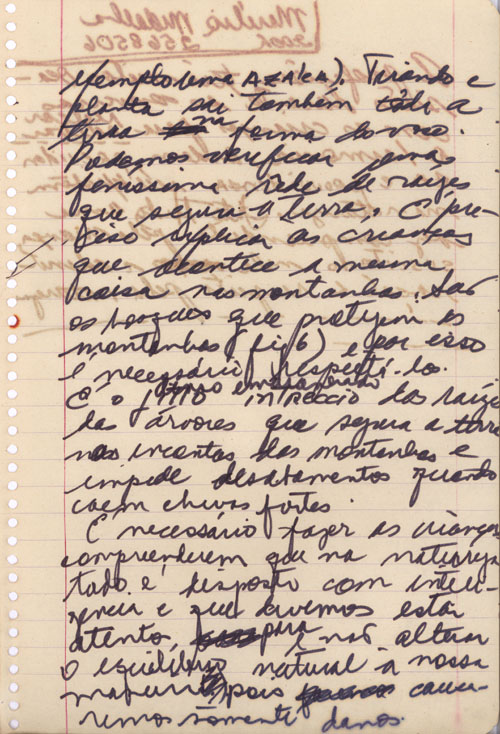 Marília
2568506
exemplo uma AZALEA). Tirando a
planta sai também toda a
terra na forma do vaso.
Podemos verificar uma
feníssima rede de raizes
que segura a terra. É pre-
ciso explicar as crianças
que acontece a mesma
coisa nas montanhas. São
os bosques que protejem as
montanhas (fig 6) e por isso
é necessário respeitá-los.
É o das raizes
das árvores que segura a terra
nas encostas das montanhas e
impede desabamentos quando
caem chuvas fortes.
É necessário fazer as crianças
compreenderem que na natureza
tudo é disposto com inteli-
gencia e que devemos estar
atento, para não alterar
o equilíbrio natural a nossa
pois causa-
remos somente danos.